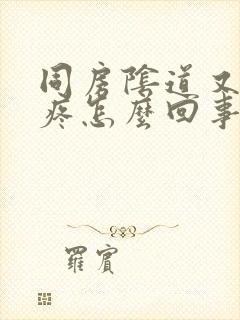 同房陰道又
疼怎麼回事
羅賓